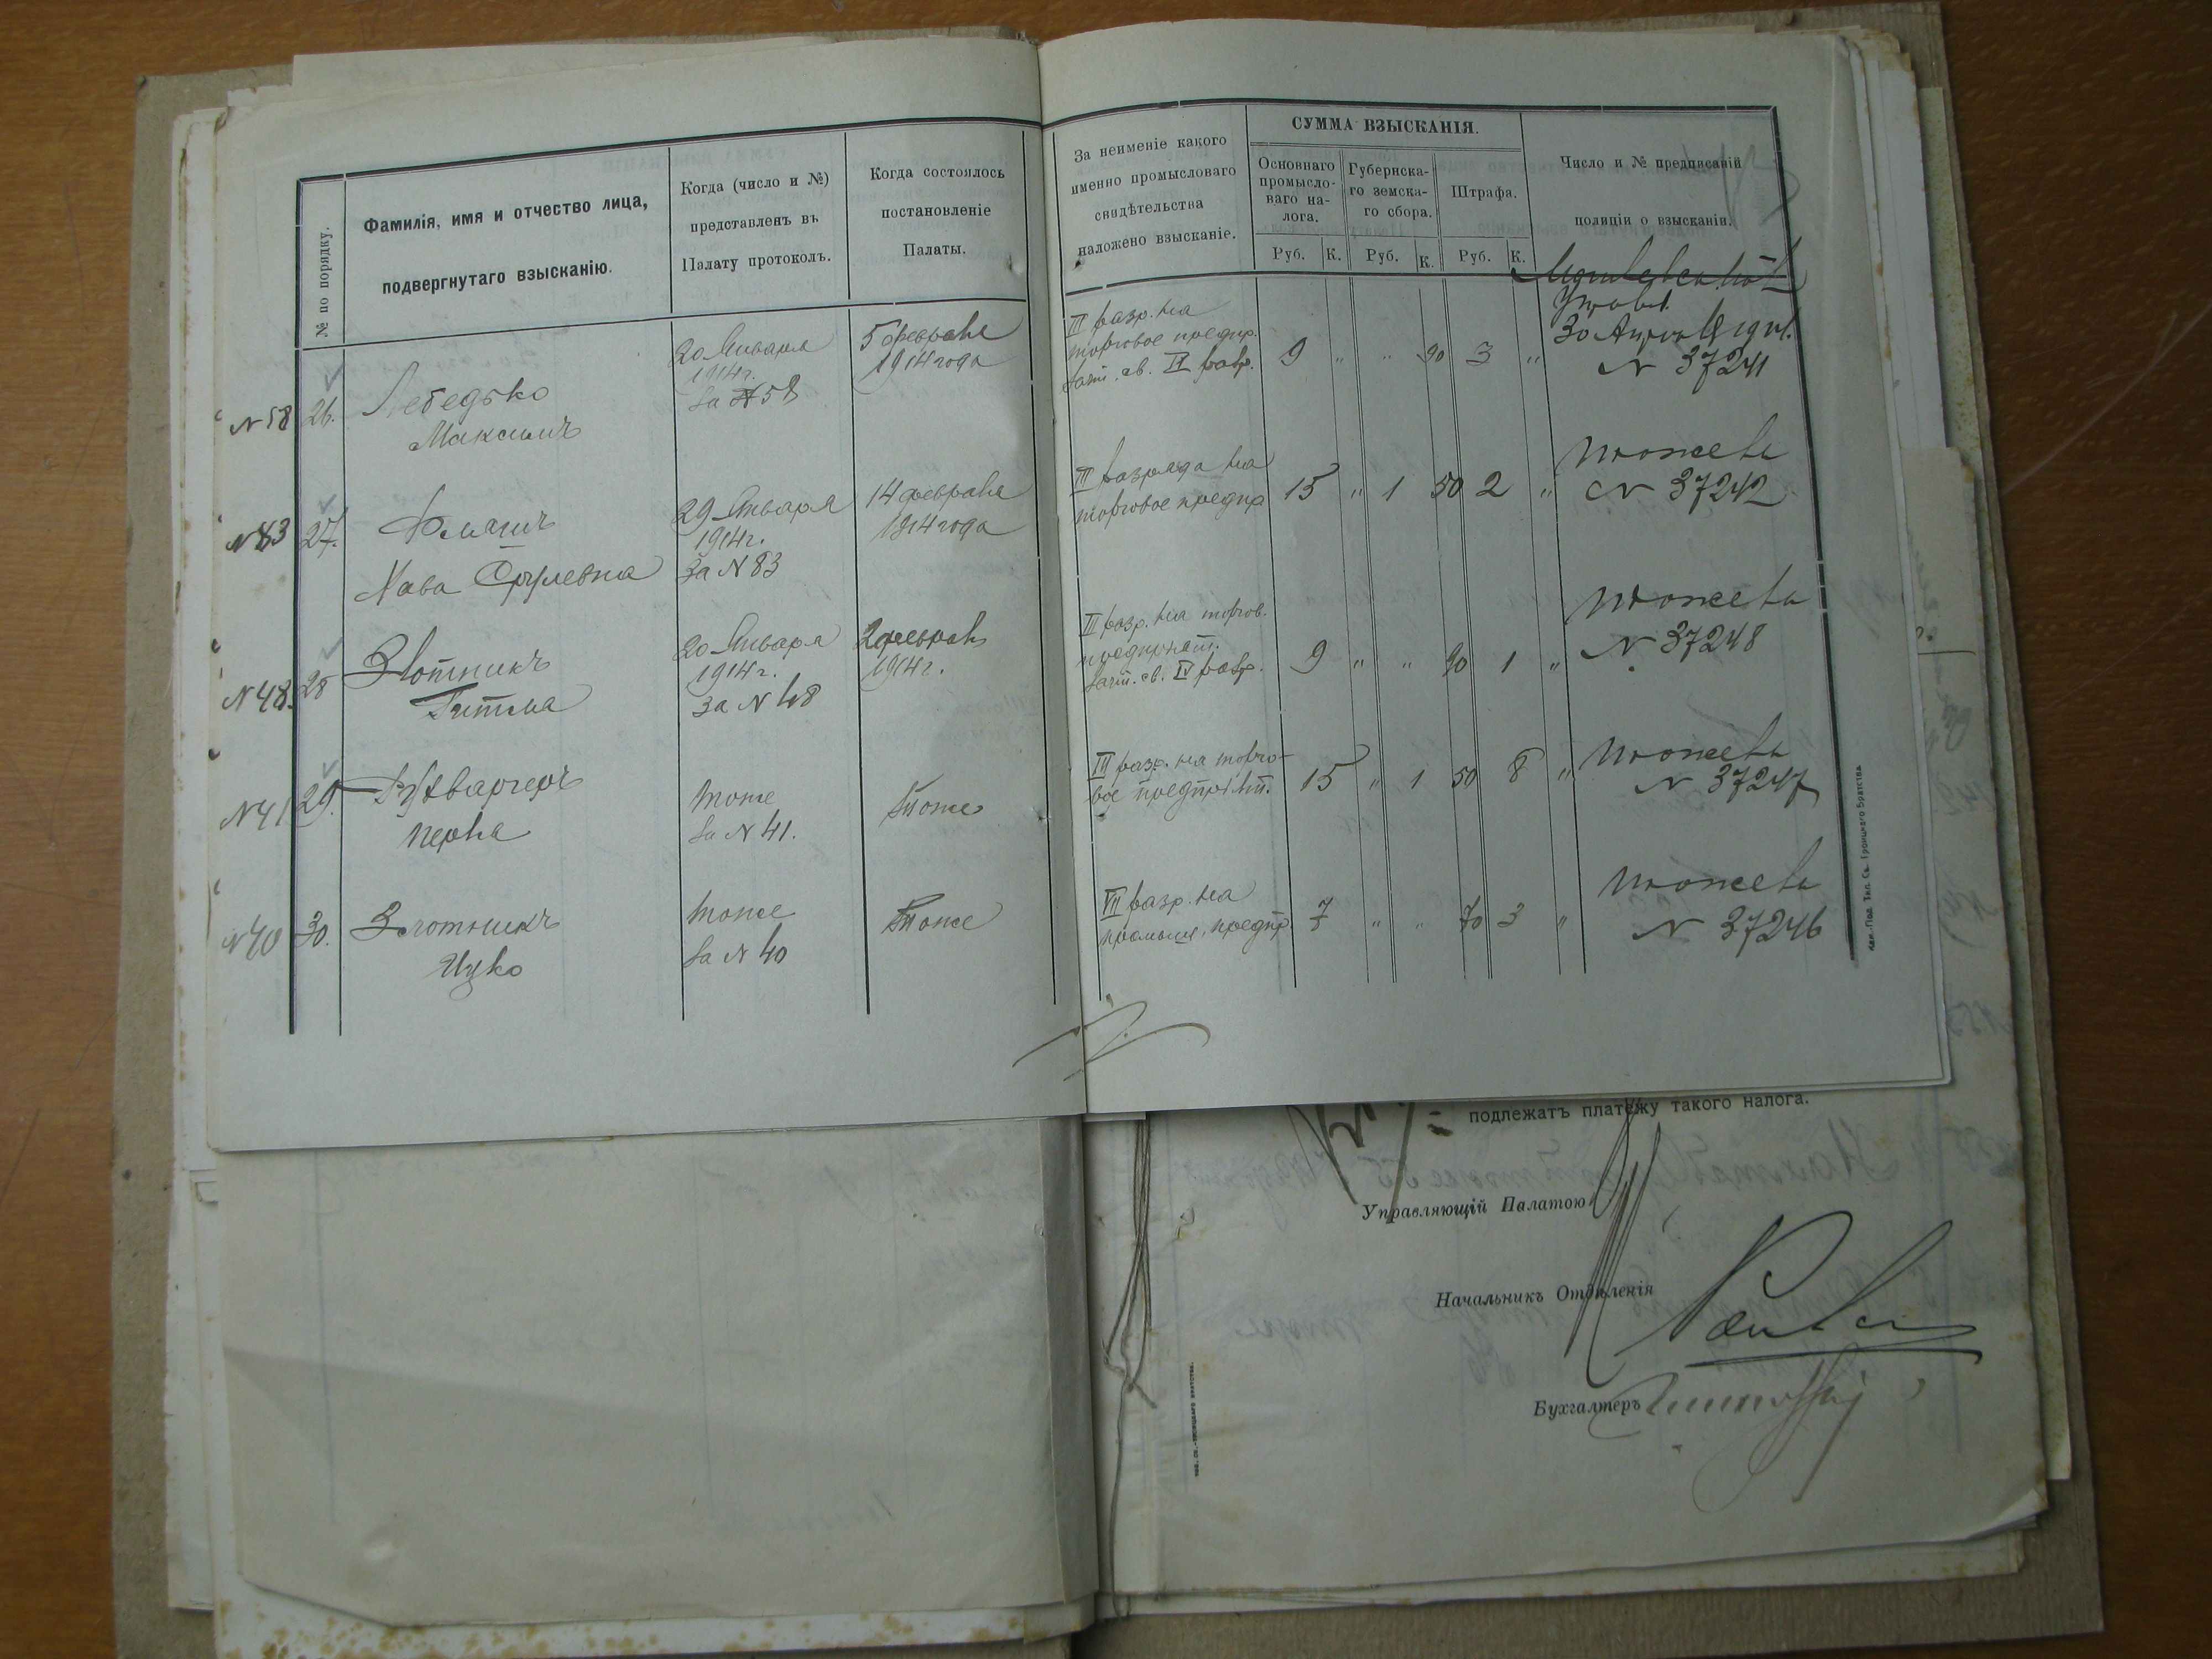 № по порядку.
Фамилія, имя и отчество лица,
подвергнутаго взысканію.
Когда (число и №)
представленъ въ
Палату протоколъ.
Когда состоялось
постановленіе
Палаты.
За неименіе какого
именно промысловаго
свидѣтельства
наложено взысканіе.
СУММА ВЗЫСКАНІЯ.
Основнаго
промысло-
ваго на-
лога.
Губернска-
го земска-
го сбора.
Штрафа.
Руб. К. Руб. К. Руб. К.
Число и № предписаній
полиціи о взысканіи.
N 58 26. Лебедько
Максимъ
20 Января
1914г.
за N 58
5 февраля
1914 года
III разр. на
торговое предпр.
зачт. св. IV разр.
9 " " 90 3 "
30 Апреля 1914г.
N 37241
N 83 27.
Хава
29 Января
1914г.
За N 83
14 февраля
1914 года
III разряда на
торговое предпр
15 " 1 50 2 "
тожева
N 37242
N 48. 28 Злотникъ
Гитма
20 Января
1914г.
За N 48
2 февраля
1914г.
III разр. на торгов.
предприят.
зачт. св. IV разр.
9 " " 90 1 "
тожева
N 37248
N 41 29.
Перла
тоже
за N 41.
Тоже
III разр. на торго-
вое предпріят.
15 " 1 50 8 "
тожева
N 37247
N 40 30. Злотникъ
Ицко
тоже
за N 40
Тоже
VII разр. на
промыш. предпр.
7 " " 70 3 "
тожева
N 37246
Кам.-Под. Тип. Св. Троицкаго Братства
подлежатъ платежу такого налога.
Управляющій Палатою
Начальникъ Отдѣленія
Бухгалтеръ